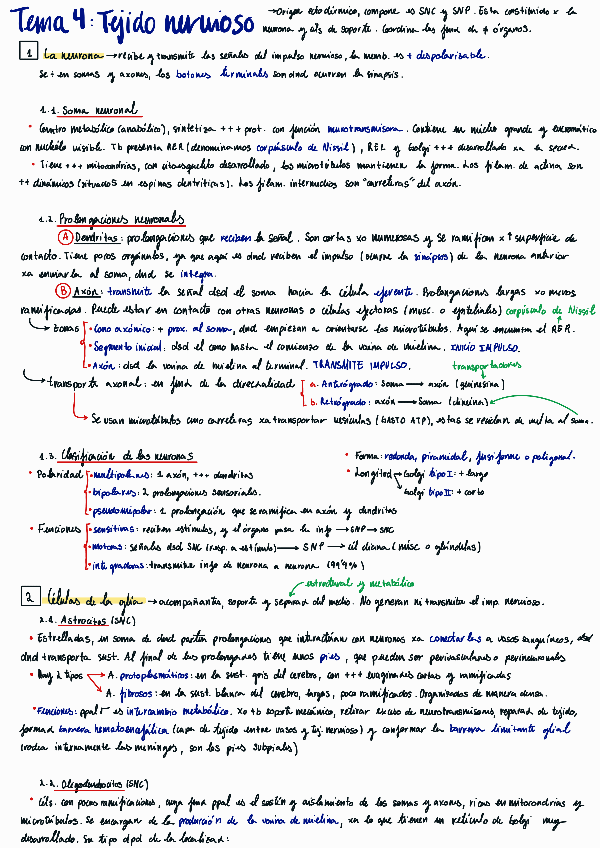 Tema 4: Tejido nervioso → Origen ectodérmico, compone es SNC y SNP. Esta constituido x la
neurona y cls de soporte. Coordina las func de ≠ órganos.
1 La neurona → recibe y transmite las señales del impulso nervioso, la memb. es + despolarizable.
Se ÷ en somas y axones, los botones terminales son dnd ocurren la sinapsis.
1.1. Soma neuronal
• Centro metabólico (anabólico), sintetiza +++ prot. con función neurotransmisora. Contiene un núcleo grande y eucromático
con nucléolo visible. Tb presenta RER (denominamos corpúsculo de Nissil), REL y Golgi +++ desarrollado xa la secrec.
• Tiene +++ mitocondrias, con citoesqueleto desarrollado, los microtúbulos mantienen la forma. Los filam. de actina son
++ dinámicos (situados en espinas dentríticas). Los filam. intermedios son "carreteras" del axón.
1.2. Prolongaciones neuronales
A Dendritas: prolongaciones que reciben la señal. Son cortas xo numerosas y se ramifican x ↑ superficie de
contacto. Tiene pocos orgánulos, ya que aquí es dnd reciben el impulso (ocurre la sinápsis) de la neurona anterior
xa enviarla al soma, dnd se integra.
B Axón: transmite la señal dsd el soma hacia la célula eferente. Prolongaciones largas xo menos
ramificadas. Puede estar en contacto con otras neuronas o células efectoras (musc. o epiteliales) corpúsculo de Nissil
→ zonas • Cono axónico: + prox. al soma, dnd empiezan a orientarse los microtúbulos. Aquí se encuentra el RER.
• Segmento inicial: dsd el cono hasta el comienzo de la vaina de mielina. INICIO IMPULSO.
• Axón: dsd la vaina de mielina al terminal. TRANSMITE IMPULSO. transportadores
→ transporte axonal: en func de la direccionalidad a. Anterógrado: soma → axón (quinesina)
b. Retrógrado: axón → soma (dineina)
→ Se usan microtúbulos cmo carreteras xa transportar vesículas (GASTO ATP), estas se reciclan de vuelta al soma.
1.3. Clasificación de las neuronas
• Forma: redonda, piramidal, fusiforme o poligonal.
• Polaridad • multipolares: 1 axón, +++ dendritas
• Longitud → Golgi tipo I: + largo
• bipolares: 2 prolongaciones sensoriales.
→ Golgi tipo II: + corto
• pseudomipolar: 1 prolongación que se ramifica en axón y dendritas
• Funciones • sensitivas: reciben estímulos, y el órgano pasa la info → SNP → SNC
• motoras: señales dsd SNC (resp. a estímulo) → SNP → cél diana (músc o glándulas)
• integradoras: transmite info de neurona a neurona (99'9%)
estructural y metabólico
2 Células de la glía → acompañantes, soporte y separad del medio. No generan ni transmite el imp. nervioso.
2.1. Astrocitos (SNC)
• Estrelladas, en soma de dnd parten prolongaciones que interactúan con neuronas xa conectarlas a vasos sanguíneos, dsd
dnd transporta sust. Al final de las prolongaciones tiene unos pies, que pueden ser perivasculares o perineuronales
• Hay 2 tipos → A. protoplasmáticos: en la sust. gris del cerebro, con +++ evaginaciones cortas y ramificadas
→ A. fibrosos: en la sust. blanca del cerebro, largas, poco ramificados. Organizados de manera densa.
• Funciones: ppal es intercambio metabólico. Xo tb soporte mecánico, retirar exceso de neurotransmisores, reparad de tejido,
formad barrera hematoencefálica (capa de tejido entre vasos y tej. nervioso) y conformar la barrera limitante glial
(rodea internamente las meninges, son los pies subpiales)
2.2. Oligodendrocitos (SNC)
• Céls. con pocas ramificaciones, cuya func ppal es el sostén y aislamiento de los somas y axones, ricas en mitocondrias y
microtúbulos. Se encargan de la producción de la vaina de mielina, xa lo que tienen un retículo de Golgi muy
desarrollado. Su tipo dpd de la localizad: